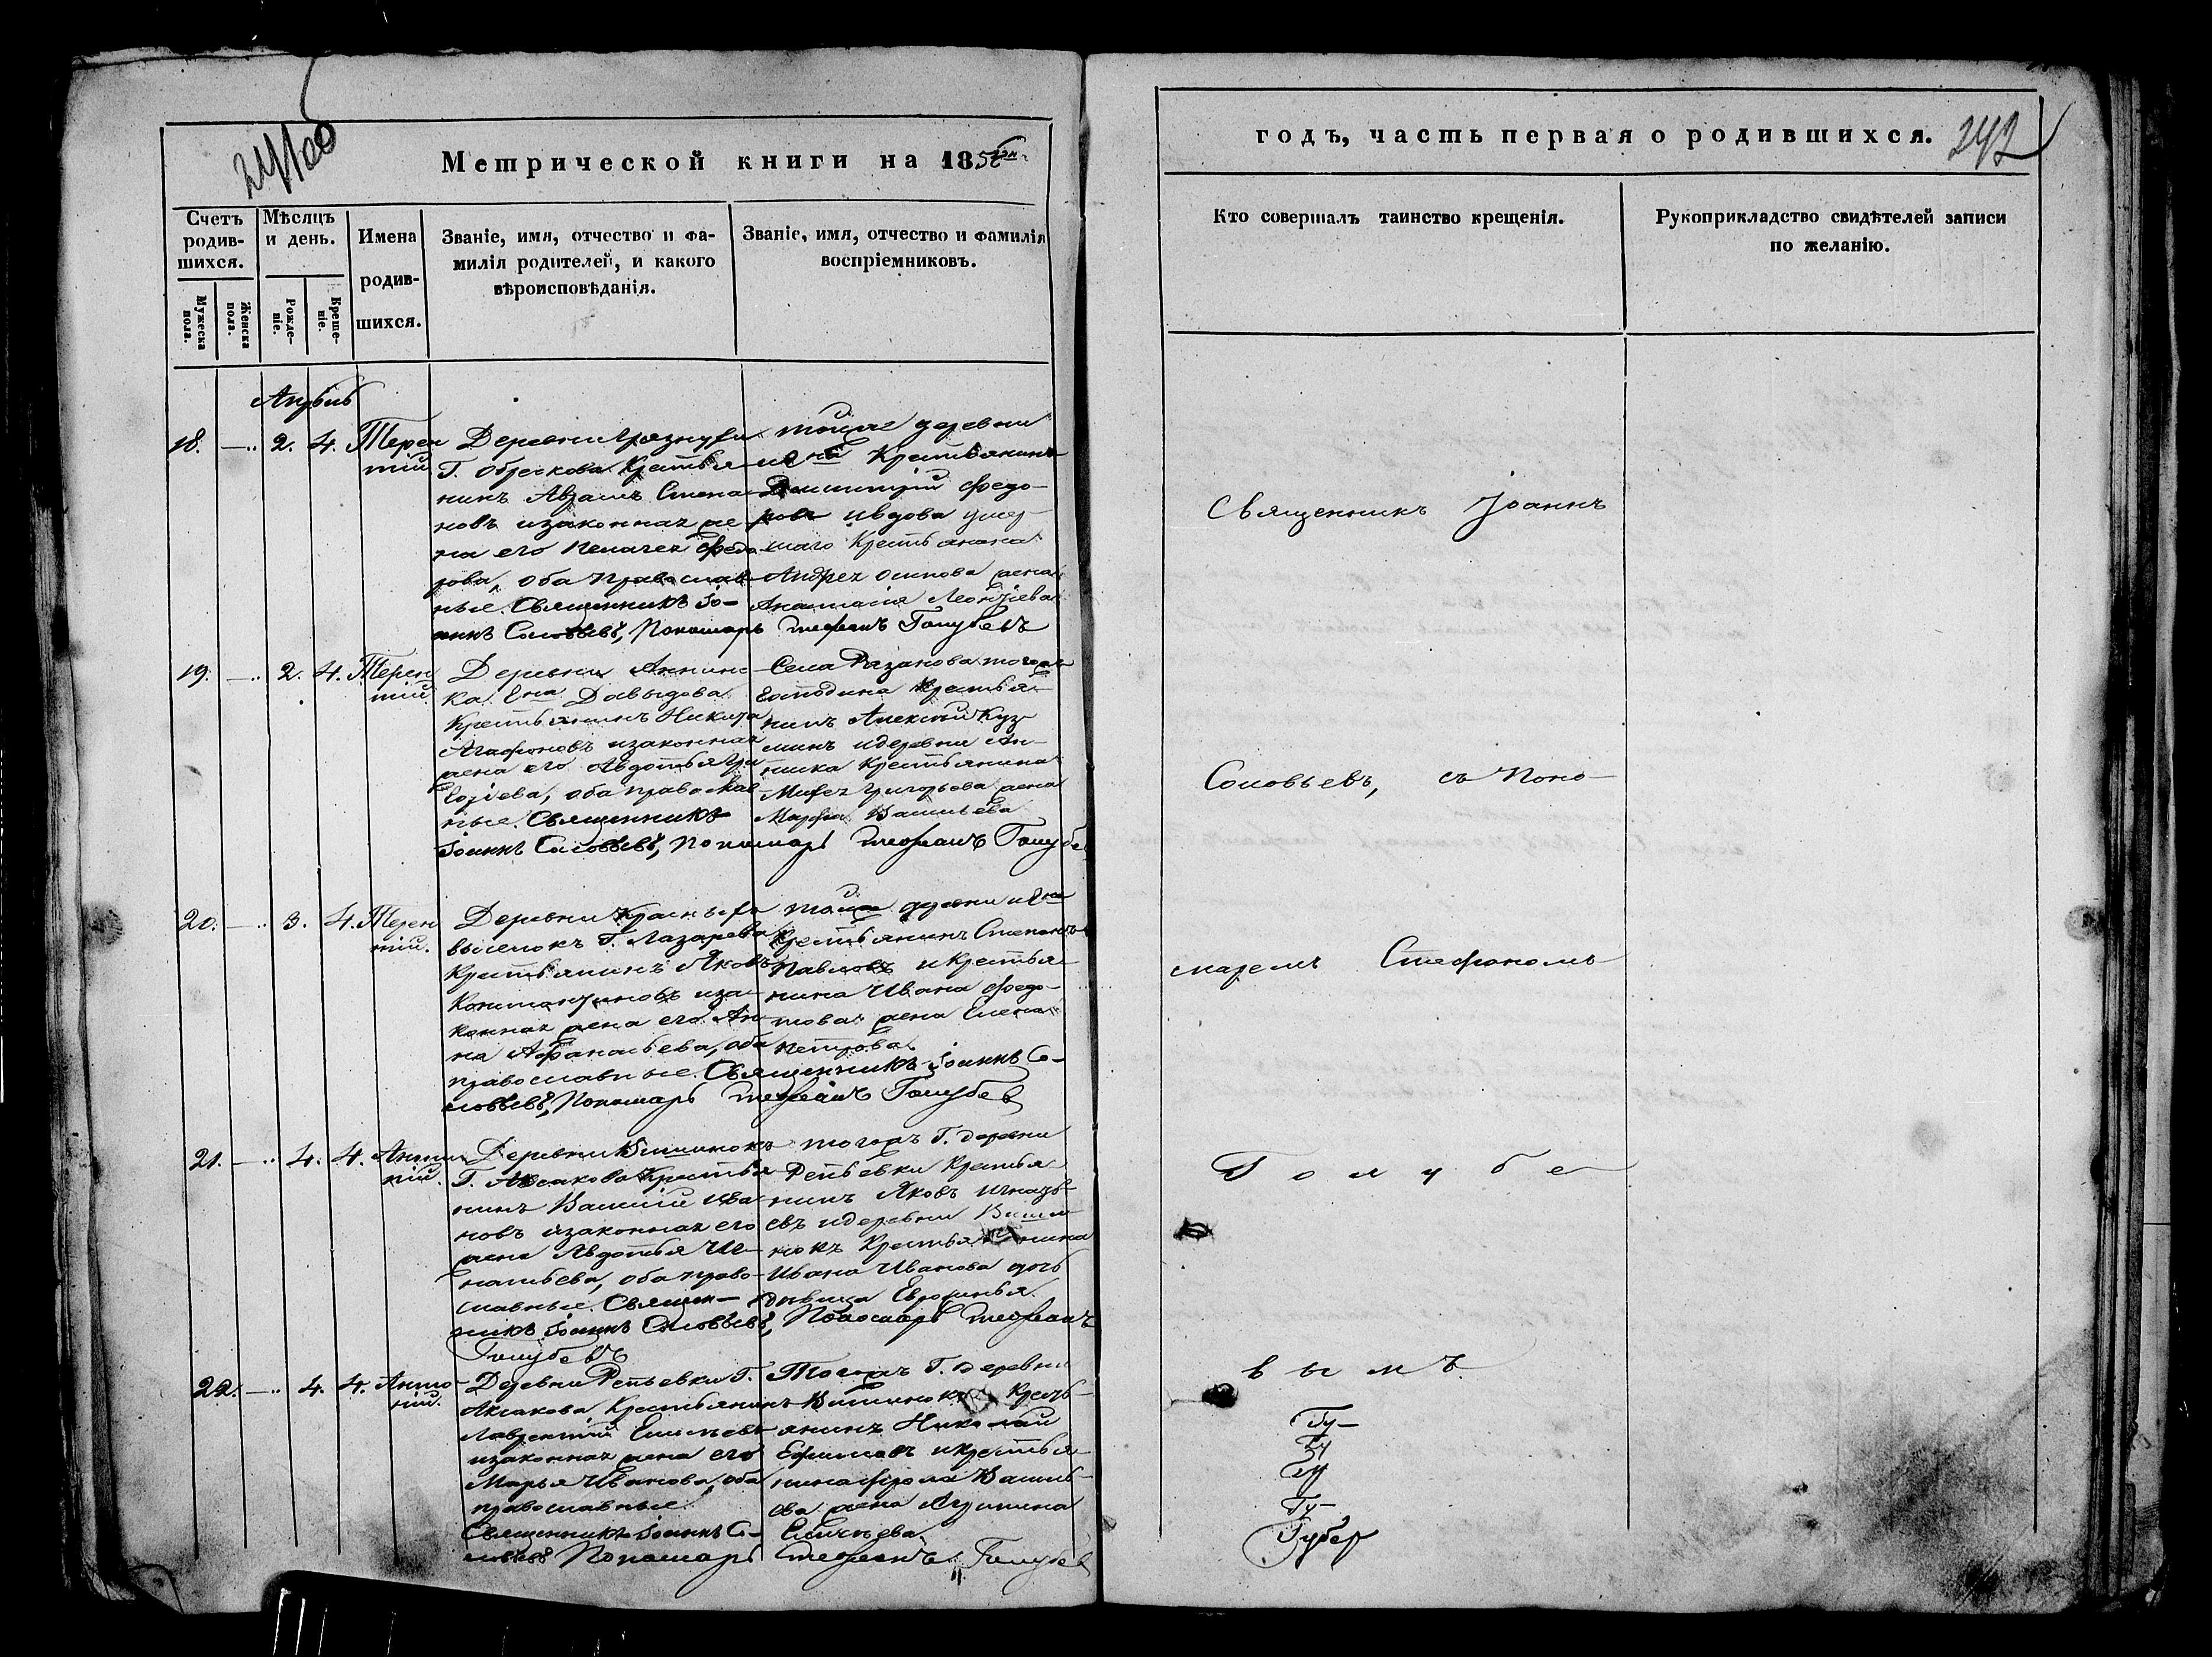 Метрической книги на 1856й
Счетъ родив-шихся.
Мужеска пола.
Женска пола.
Мѣсяцъ и день.
Рожде-ніе.
Креще-ніе.
Имена родив-шихся.
Званіе, имя, отчество и фа-
милія родителей, и какого
вѣроисповѣданія.
Званіе, имя, отчество и фамилія
воспріемниковъ.
18. — .. 2. 4. Терен
тій
Деревни
Г. Обрескова Крестья-
нинъ Аврамъ Степа-
новъ изаконная же-
на его Пелагея Федо-
рова, оба православ-
ные. Священникъ Іо-
аннъ Соловьевъ, Пономарь Стефанъ Голубевъ
тойже деревни
Крестьянинъ
Димитрій Федо-
ровъ ивдова умер-
шаго Крестьянина
Андрея Осипова жена
Анастасія Леонтіева
19. — .. 2. 4. Терен
тій.
Деревни Аннин-
ка Гна Давыдова
Крестьянинъ Никита
Агафоновъ изаконная
жена его Авдотья Гри
горіева, оба православ-
ные. Священникъ
Іоаннъ Соловьевъ, Пономарь Стефанъ Голубе
Села Рязанова тогоже
Господина Крестья-
нинъ Алексій Куз-
минъ идеревни Ан-
нинка Крестьянина
Михея Григорьева жена
Марфа Васильева
20. — .. 3. 4. Терен
тій.
Деревни Красныхъ
выселокъ Г. Лазарева
Крестьянинъ Яковъ
Константиновъ иза-
конная жена его Ан-
на Афанасьева, оба
православные. Священникъ Іоаннъ Со-
ловьевъ, Пономарь Стефанъ Голубев
тойже деревни и Гна
Крестьянинъ Степанъ
Павловъ икрестья-
нина Ивана Федо-
това жена Елена
Петрова.
21. — .. 4. 4.
Деревни Вишинокъ
Г. Аксакова Крестья-
нинъ Василій Ива-
новъ изаконная его
жена Авдотья Иг-
натьева, оба право-
славные. Священ-
никъ Іоаннъ Соловьевъ, Пономарь Стефанъ
Голубевъ
тогожъ Г. деревни
Репьевки Крестья
нинъ Яковъ Игнать
евъ идеревни
нокъ Крестьянина
Ивана Иванова дочь
дѣвица Евфимья.
22. — .. 4. 4. Анто-
ній.
Деревни Репьевки Г.
Аксакова Крестьянинъ
Лаврентій Елисеевъ
изаконная жена его
Марья Иванова, оба
православные.
Священникъ Іоаннъ Со-
ловьевъ Пономарь Стефанъ Голубев
Тогожъ Г. деревни
Вишинокъ Кресть-
янинъ Николай
Ефимовъ икрестья-
нина Фрола Василь-
ева жена
Елисеева.
годъ, часть первая о родившихся. 242
Кто совершалъ таинство крещенія.
Рукоприкладство свидѣтелей записи
по желанію.
Священникъ Іоаннъ
Соловьевъ, съ Поно-
маремъ Стефаномъ
Голубе
вымъ.
Гу-
Гу-
Губер